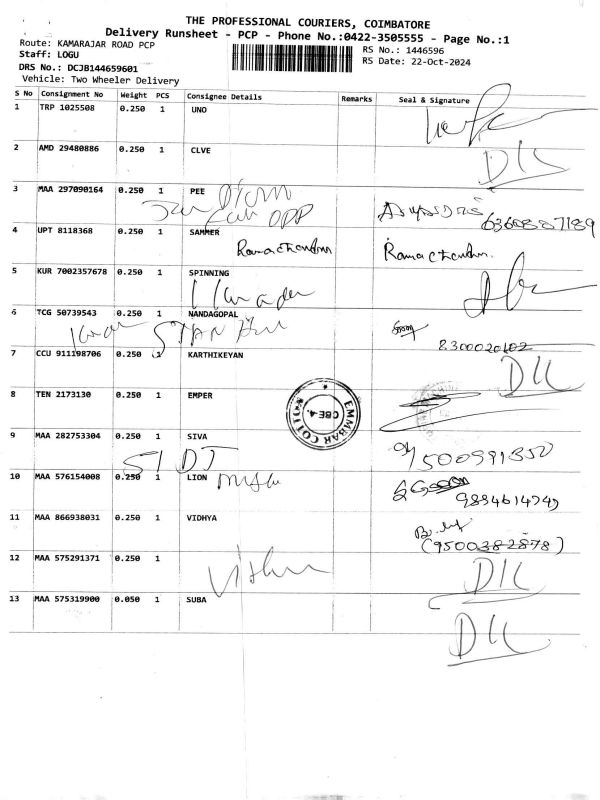 THE PROFESSIONAL COURIERS, COIMBATORE
Delivery Runsheet - PCP - Phone No.:0422-3505555 - Page No.:1
Route: KAMARAJAR ROAD PCP
RS No.: 1446596
Staff: LOGU
RS Date: 22-Oct-2024
DRS No.: DCJB144659601
Vehicle: Two Wheeler Delivery
S No Consignment No Weight PCS Consignee Details Remarks Seal & Signature
1 TRP 1025508 0.250 1 UNO
2 AMD 29480886 0.250 1 CLVE
DIL
3 MAA 297090164 0.250 1 PEE
OPP
6360887189
4 UPT 8118368 0.250 1 SAMMER
Ramachandran Ramachandran.
5 KUR 7002357678 0.250 1 SPINNING
6 TCG 50739543 0.250 1 NANDAGOPAL
STAN
8300020602
7 CCU 911198706 0.250 1 KARTHIKEYAN
DIL
8 TEN 2173130 0.250 1 EMPER
CBE-4.
9 MAA 282753304 0.250 1 SIVA
ST DT
9500591350
10 MAA 576154008 0.250 1 LION
9894614749
11 MAA 866938031 0.250 1 VIDHYA
(9500382878)
12 MAA 575291371 0.250 1
DIL
13 MAA 575319900 0.050 1 SUBA
DIL